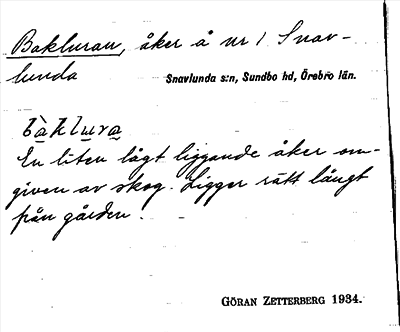 Bakluran, åker å nr 1 Snav-
lunda
Snavlunda s:n, Sundbo hd, Örebro län.
bàklura
En liten lågt liggande åker om-
given av skog. Ligger rätt långt
från gården.
GÖRAN ZETTERBERG 1934.